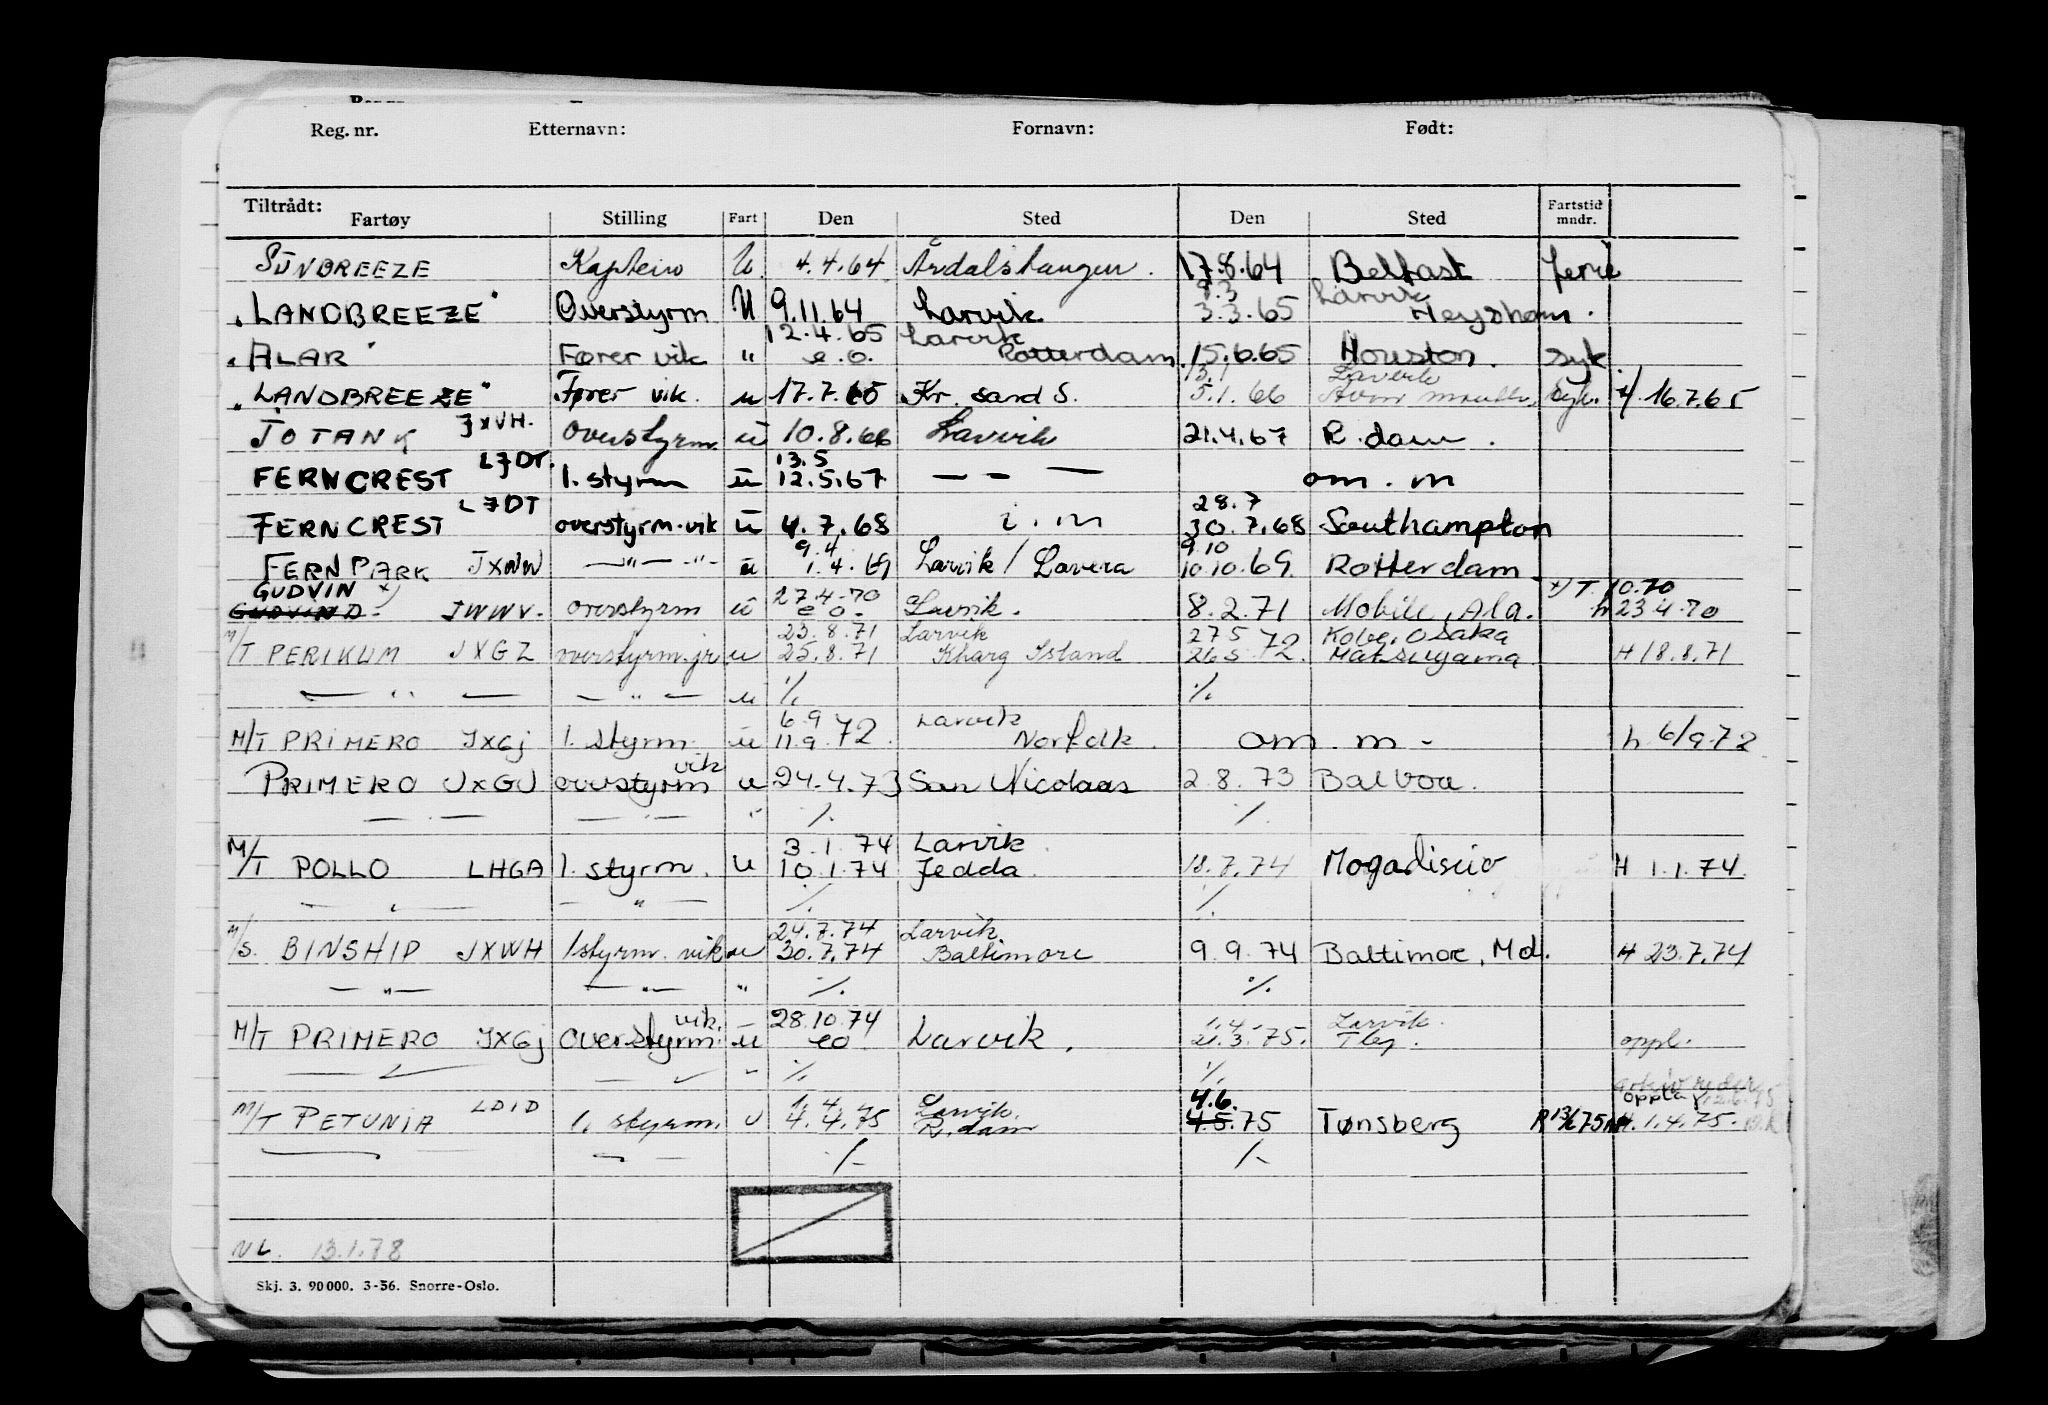 Reg. nr. Etternavn: Fornavn: Født:
Tiltrådt:
Fartøy Stilling Fart Den Sted Den Sted Fartstid mndr.
SUNBREEZE Kaptein U. 4.4.64 Årdalstangen. 17.8.64 Belfast ferie
9.3 Larvik
"LANDBREEZE" Overstyrm U 9.11.64 Larvik 3.3.65 Heysham.
12.4.65 Larvik
"ALAR" Fører vik " e.o. Rotterdam 15.6.65 Houston. syk
13.1 Larvik
"LANDBREEZE" Fører vik. u 17.7.65 Kr. sand S. 5.1.66 Syk. 16.7.65
JOTANK JXVH. Overstyrm. u 10.8.66 Larvik 21.4.67 R.dam.
LJDT. 13.5
FERNCREST 1. styrm u 12.5.67 — – — om. m
L7DT 28.7
FERNCREST overstyrm. vik u 4.7.68 i. m 30.7.68 Southampton
9.4 9.10
FERNPARK JXWW —"— -"- u 1.4.69 Larvik / Lavera 10.10.69. Rotterdam
GUDVIN x) 27.4.70 x) T. 10.70
GUDVIND - JWWV. overstyrm u e o. Larvik. 8.2.71 Mobile, Ala. h 23.4.70
23.8.71 Larvik 27 5 Kobe, Osaka
M/T PERIKUM JXGZ overstyrm. jr u 25.8.71 Kharg Island 26 5 72. Matsuyama H 18.8.71
— " — — " — u ./. ./.
6.9 Larvik
M/T PRIMERO JXGJ 1. styrm. u 11.9 72. Norfolk. om. m - h 6/9-72
vik
PRIMERO JXGJ overstyrm u 24.4.73 San Nicolaas 2.8.73 Balboa.
— . — — . — " ./. ./.
3.1.74 Larvik.
M/T POLLO LHGA 1. styrm. u 10.1.74 Jedda. 18.7.74 Mogadiscio H 1.1.74.
— " — — " — ./. ./.
24.7.74 Larvik
M/S. BINSHIP JXWH 1 styrm. vik u 30.7.74 Baltimore 9.9.74 Baltimore, Md. H 23.7.74
— " — — " — " ./. ./.
vik. 28.10.74 1.4 Larvik.
M/T PRIMERO JXGJ overstyrm. u eo Larvik. 21.3.75. Tby. oppl.
— " — — " — " ./. ./.
1.4 Larvik. 4.6.
M/T PETUNIA LDID 1. styrm. u 4.4.75 R.dam 4.5.75 Tønsberg R 13/6 75 H. 1.4.75.
— — — — ./- ./-
NL. 13.1.78
Skj. 3. 90 000. 3-56. Snorre-Oslo.